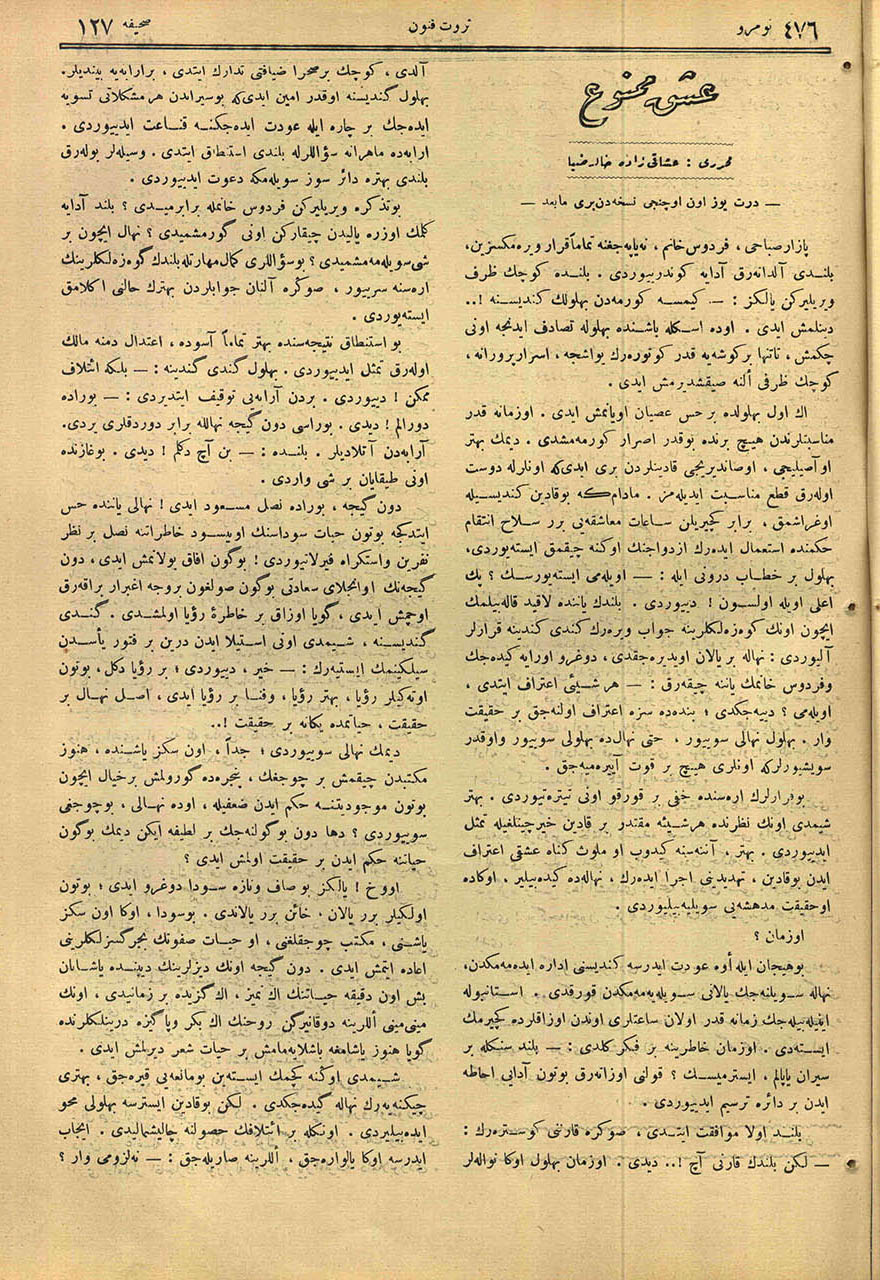 ٤٧٦ نومرو
ثروت فنون
صحیفه ١٢٧
عشق ممنوع
محرری : عشاقی زاده خالد ضیا
— درت یوز اون اوچنجی نسخه‌دن بری مابعد —
پازار صباحی ، فردوس خانم ، نه‌یاپه‌جغنه تماماً قرار ویره‌مکسزین،
بلندی آلدانه‌رق آدایه کوندریوردی . بلنده کوچك ظرف
ویریلیرکن یالکز : — کیمسه کورمه‌دن بهلولك کندیسنه !..
دنلمش ایدی . اوده اسکله باشنده بهلوله تصادف ایدنجه اونی
چکمش ، تاتنها برکوشه‌یه قدر کوتوره‌رك یواشجه ، اسرارپرورانه ،
کوچك ظرفی ألنه صیقشدیرمش ایدی .
اك اول بهلولده بر حس عصیان اویانمش ایدی . اوزمانه قدر
مناسبتلرندن هیچ برنده بوقدر اصرار کورمه‌مشدی . دیمك بهتر
اوآصیلیجی ، اوصاندیریجی قادینلردن بری ایدی‌که اونلرله دوست
اوله‌رق قطع مناسبت ایدیله‌مز . مادام‌که بوقادین کندیسیله
اوغراشمق ، برابر کچیریلن ساعات معاشقه‌یی برر سلاح انتقام
حکمنده استعمال ایده‌رك ازدواجنك اوکنه چیقمق ایسته‌یوردی،
بهلول بر خطاب درونی ایله : — اویله‌می ایسته‌یورسك ؟ پك
اعلی اویله اولسون ! دییوردی . بلندك یاننده لاقید قاله‌بیلمك
ایچون اونك کوه‌زه‌لکلرینه جواب ویره‌رك کندی کندینه قرارلر
آلیوردی : نهاله بر یالان اویدیره‌جقدی ، دوغرو اورایه کیده‌جك
وفردوس خانمك یاننه چیقه‌رق : — هر شیئی اعتراف ایتدی ،
اویله‌می ؟ دییه‌جکدی ؛ بنده‌ده سزه اعتراف اولنه‌جق بر حقیقت
وار . بهلول نهالی سویییور ، حتی نهال‌ده بهلولی سویییور واوقدر
سویشیورلرکه اونلری هیچ بر قوت آییره‌میه‌جق .
بوقرارلرك اره‌سنده خفی بر قورقو اونی تیتره‌تیوردی . بهتر
شیمدی اونك نظرنده هرشیئه مقتدر بر قادین خیرچینلغیله تمثل
ایدییوردی . بهتر ، آننه‌سنه کیدوب او ملوث کناه عشقی اعتراف
ایدن بوقادین ، تهدیدینی اجرا ایده‌رك ، نهاله‌ده کیده‌بیلیر ، اوکاده
اوحقیقت مدهشه‌یی سویلیه‌بیلیوردی .
اوزمان ؟
بوهیجان ایله أوه عودت ایدرسه کندیسنی اداره ایده‌مه‌مکدن،
نهاله سویلنه‌جك یالانی سویلیه‌مه‌مکدن قورقدی . استانبوله
اینیله‌بیله‌جك زمانه قدر اولان ساعتلری اوندن اوزاقلرده کچیرمك
ایسته‌دی . اوزمان خاطرینه بر فکر کلدی : — بلند سنکله بر
سیران یاپالم ، ایسترمیسك ؟ قولنی اوزاته‌رق بوتون آدایی احاطه
ایدن بر دائره ترسیم ایدییوردی .
بلند اولا موافقت ایتدی ، صوکره قارننی کوستره‌رك :
— لکن بلندك قارنی آچ !.. دیدی . اوزمان بهلول اوکا نواله‌لر
آلدی ، کوچك بر صحرا ضیافتی تدارك ایتدی ، بر ارابه‌یه بیندیلر.
بهلول کندیسنه اوقدر امین ایدی‌که بوسیراندن هر مشکلاتی تسویه
ایده‌جك بر چاره ایله عودت ایده‌جکنه قناعت ایدییوردی .
ارابه‌ده ماهرانه سؤاللرله بلندی استنطاق ایتدی . وسیله‌لر بوله‌رق
بلندی بهتره دائر سوز سویله‌مکه دعوت ایدییوردی .
بوتذکره ویریلیرکن فردوس خانمله برابرمیدی ؟ بلند آدایه
کلمك اوزره یالیدن چیقارکن اونی کورمشمیدی ؟ نهال ایچون بر
شی سویله‌مه‌مشمیدی ؟ بوسؤاللری کمال مهارتله بلندك کوه‌زه‌لکلرینك
اره‌سنه سرپییور ، صوکره آلنان جوابلردن بهترك حالنی اکلامق
ایسته‌یوردی .
بو استنطاق نتیجه‌سنده بهتر تماماً آسوده ، اعتدال دمنه مالك
اوله‌رق تمثل ایدییوردی . بهلول کندی کندینه : — بلکه ائتلاف
ممکن ! دییوردی . بردن آرابه‌یی توقیف ایتدیردی : — بوراده
دورالم ! دیدی . بوراسی دون کیجه نهالله برابر دوردقلری یردی.
آرابه‌دن آتلادیلر . بلنده : — بن آچ دکلم ! دیدی . بوغازنده
اونی طیقایان بر شی واردی .
دون کیجه ، بوراده نصل مسعود ایدی ! نهالی یاننده حس
ایتدکجه بوتون حیات سوداسنك اوبیسود خاطراتنه نصل بر نظر
نفرین واستکراه فیرلاتیوردی ! بوکون افاق بولانمش ایدی ، دون
کیجه‌نك اوانجلای سعادتی بوکون صولغون بروجه اغبرار براقه‌رق
اوچمش ایدی ، کویا اوزاق بر خاطرهٔ رؤیا اولمشدی . کندی
کندیسنه ، شیمدی اونی استیلا ایدن درین بر فتور یأسدن
سیلکینمك ایستیه‌رك : — خیر ، دییوردی ؛ بر رؤیا دکل ، بوتون
اوته‌کیلر رؤیا ، بهتر رؤیا ، وفنا بر رؤیا ایدی ، اصل نهال بر
حقیقت ، حیاتمده یکانه بر حقیقت !..
دیمك نهالی سویییوردی ؛ جداً ، اون سکز یاشنده ، هنوز
مکتبدن چیقمش بر چوجغك ، پنجره‌ده کورولمش برخیال ایچون
بوتون موجودیتنه حکم ایدن ضعفیله ، اوده نهالی ، بوچوجغی
سویییوردی ؟ دها دون بوکولنه‌جك بر لطیفه ایکن دیمك بوکون
حیاتنه حکم ایدن بر حقیقت اولمش ایدی ؟
اووخ ! یالکز بو صاف وتازه سودا دوغرو ایدی ؛ بوتون
اولکیلر برر یالان ، خائن برر یالاندی . بوسودا ، اوکا اون سکز
یاشنی ، مکتب چوجقلغنی ، او حیات صفوتك بجرکسزلکلرینی
اعاده ایتمش ایدی . دون کیجه اونك دیزلرینك دیبنده یاشانان
بش اون دقیقه حیاتنك اك تمیز ، اك کزیده بر زمانیدی ، اونك
مینی‌مینی أللرینه دوقانیرکن روحنك اك بکر وپاکیزه درینلکلرنده
کویا هنوز یاشامغه باشلایه‌مامش بر حیات شعر دیرلمش ایدی .
شیمدی اوکنه کچمك ایسته‌ین بومانعه‌یی قیره‌جق ، بهتری
چیکنه‌یه‌رك نهاله کیده‌جکدی . لکن بوقادین ایسترسه بهلولی محو
ایده‌بیلیردی . اونکله بر ائتلافك حصولنه چالیشمالیدی . ایجاب
ایدرسه اوکا یالواره‌جق ، أللرینه صاریله‌جق : — نه‌لزومی وار ؟